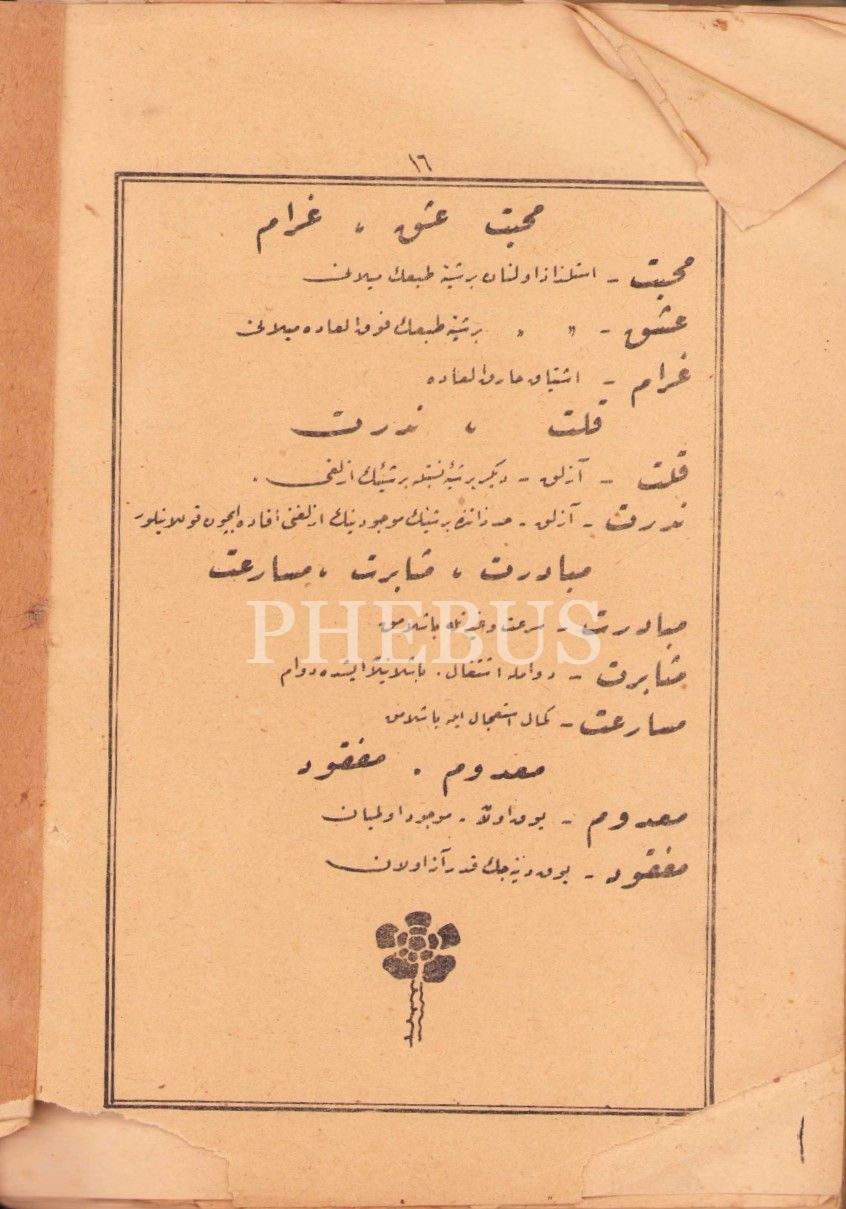 ١٦
محبت عشق ، غرام
محبت – استلذاذ اولنان برشیئه طبعك میلانی
عشق – 〃 〃 برشیئه طبعك فوق العاده میلانی
غرام – اشتیاق خارق العاده
قلت ، ندرت
قلت – آزلق – دیکر برشیئه نسبتله برشیئك آزلغی .
ندرت – آزلق – حد ذاتنده برشیئك موجودینك آزلغنی افاده ایچون قوللانیلور
مبادرت ، مثابرت ، مسارعت
PHEBUS
مبادرت – سرعت و غیرتله باشلامق
مثابرت – دوامله اشتغال . باشلانیلان ایشده دوام
مسارعت – کمال استعجال ایله باشلامق
معدوم . مفقود
معدوم – یوق اولان . موجود اولمیان
مفقود – یوق دینه جك قدر آز اولان